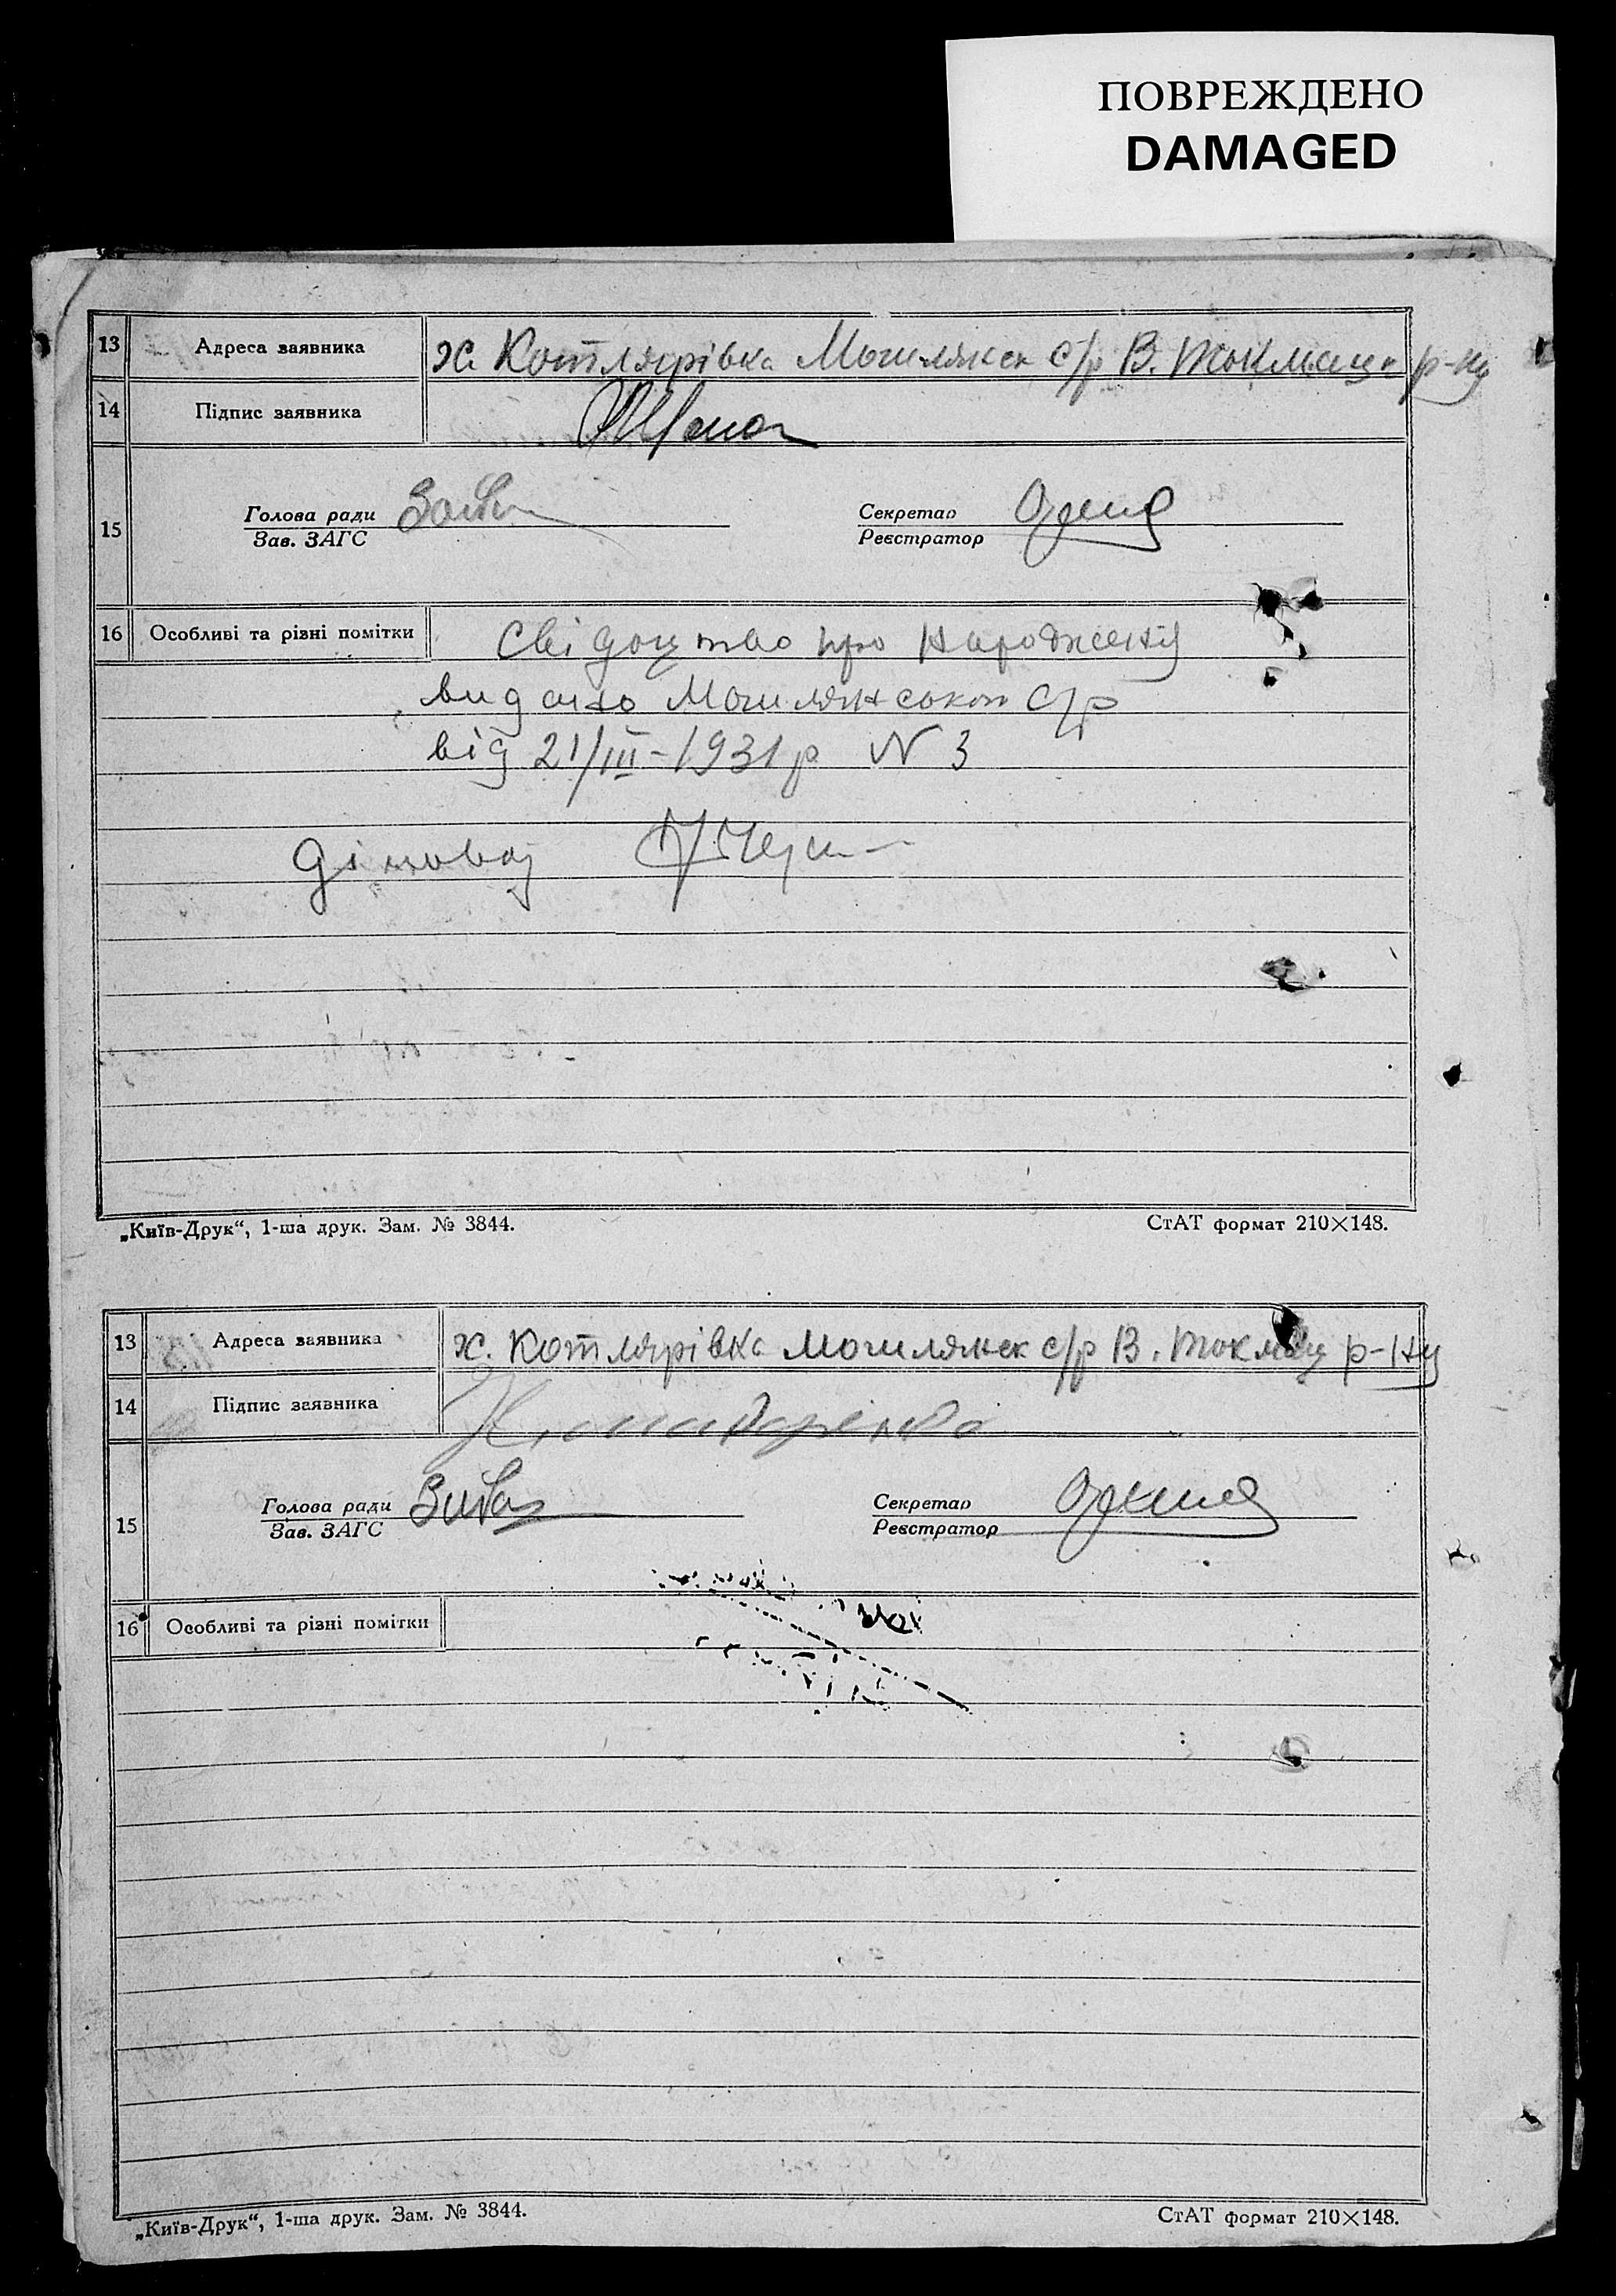 ПОВРЕЖДЕНО
DAMAGED
13 Адреса заявника х. Котлярівка Могилянск с/р В. Токмацк р-ну
14 Підпис заявника
Голова ради Секретар
15
Зав. ЗАГС Реєстратор
16 Особливі та різні помітки Свідоцтво про народження
видано Могилянською с/р
від 21/III-1931 р N 3
Діловод
„Київ-Друк“, 1-ша друк. Зам. № 3844. СтАТ формат 210×148.
13 Адреса заявника х. Котлярівка Могилянск с/р В. Токмац р-ну
14 Підпис заявника
Голова ради Секретар
15
Зав. ЗАГС Реєстратор
16 Особливі та різні помітки
„Київ-Друк“, 1-ша друк. Зам. № 3844. СтАТ формат 210×148.